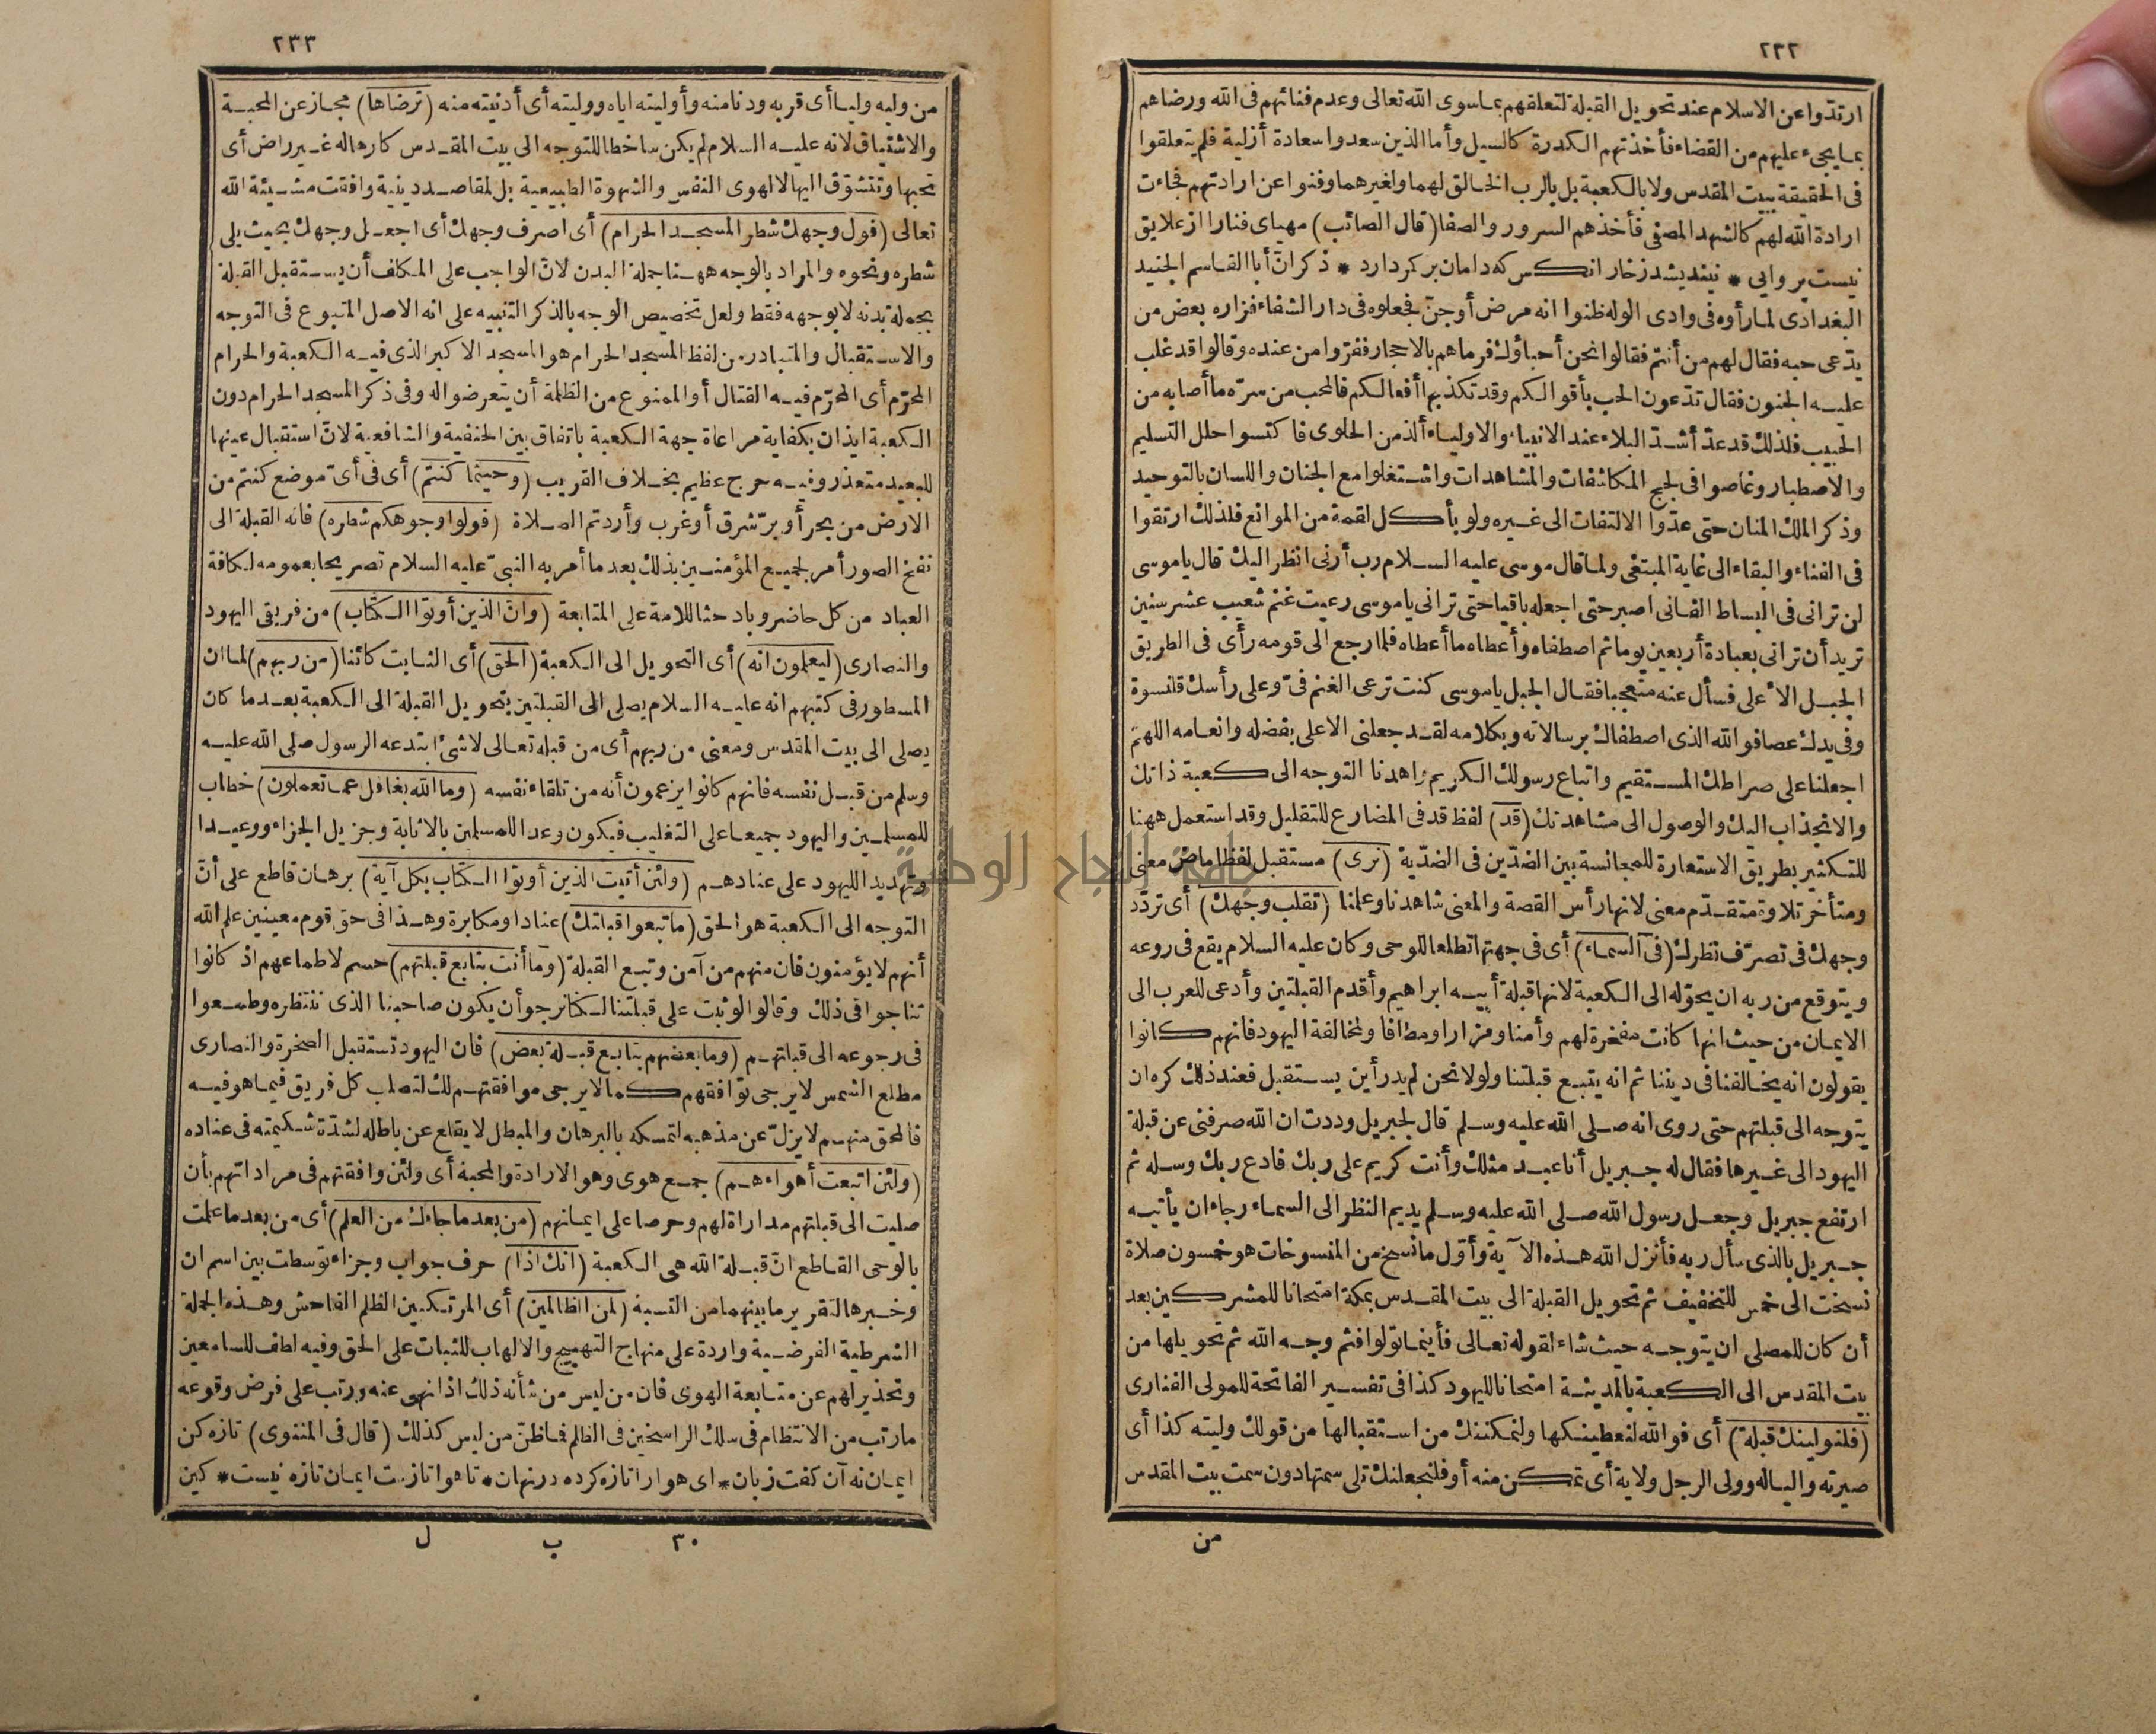 ٢٣٢
ارتدّوا عن الاسلام عند تحويل القبلة لتعلقهم بما سوى الله تعالى وعدم فنائهم فى الله ورضاهم
بما يجىء عليهم من القضاء فأخذتهم الكدرة كالسيل وأما الذين سعدوا سعادة أزلية فلم يتعلقوا
فى الحقيقة ببيت المقدس ولا بالكعبة بل بالرب الخالق لهما ولغيرهما وفنوا عن ارادتهم فجاءت
ارادة الله لهم كالشهد المصفى فأخذهم السرور والصفا (قال الصائب) مهياى فنارا از علايق
نيست پروايى * نينديشد زخار انكس كه دامان بركمر دارد * ذكر انّ أبا القاسم الجنيد
البغدادى لما رأوه فى وادى الوله ظنوا انه مرض أوجنّ فجعلوه فى دار الشفاء فزاره بعض من
يدّعى حبه فقال لهم من أنتم فقالوا نحن أحباؤك فرماهم بالاحجار ففرّوا من عنده وقالوا قد غلب
عليه الجنون فقال تدّعون الحب بأقوالكم وقد تكذبها أفعالكم فالمحب من سرّه ما أصابه من
الحبيب فلذلك قد عدّ أشدّ البلاء عند الانبياء والاولياء ألذ من الحلوى فاكتسوا حلل التسليم
والاصطبار وغاصوا فى لجج المكاشفات والمشاهدات واشتغلوا مع الجنان واللسان بالتوحيد
وذكر الملك المنان حتى عدّوا الالتفات الى غيره ولو بأكل لقمة من الموانع فلذلك ارتقوا
فى الفناء والبقاء الى غاية المبتغى ولما قال موسى عليه السلام رب أرنى انظر اليك قال ياموسى
لن ترانى فى البساط الفانى اصبر حتى اجعله باقيا حتى ترانى ياموسى رعيت غنم شعيب عشر سنين
تريد أن ترانى بعبادة أربعين يوما ثم اصطفاه وأعطاه ما أعطاه فلما رجع الى قومه رأى فى الطريق
الجبل الاعلى فسأل عنه متعجبا فقال الجبل ياموسى كنت ترعى الغنم فىّ وعلى رأسك قلنسوة
وفى يدك عصا فوالله الذى اصطفاك برسالاته وبكلامه لقد جعلنى الاعلى بفضله وانعامه اللهم
اجعلنا على صراطك المستقيم واتباع رسولك الكريم واهدنا التوجه الى كعبة ذاتك
والانجذاب اليك والوصول الى مشاهدتك (قد) لفظ قد فى المضارع للتقليل وقد استعمل ههنا
للتكثير بطريق الاستعارة للمجانسة بين الضدّين فى الضدّية (نرى) مستقبل لفظا ماض معنى
ومتأخر تلاوة متقدّم معنى لانها رأس القصة والمعنى شاهدنا وعلمنا (تقلب وجهك) أى تردّد
وجهك فى تصرّف نظرك (فى السماء) أى فى جهتها تطلعا للوحى وكان عليه السلام يقع فى روعه
ويتوقع من ربه ان يحوّله الى الكعبة لانها قبلة أبيه ابراهيم وأقدم القبلتين وأدعى للعرب الى
الايمان من حيث انها كانت مفخرة لهم وأمنا ومزارا ومطافا ولمخالفة اليهود فانهم كانوا
يقولون انه يخالفنا فى ديننا ثم انه يتبع قبلتنا ولولا نحن لم يدر أين يستقبل فعند ذلك كره ان
يتوجه الى قبلتهم حتى روى انه صلى الله عليه وسلم قال لجبريل وددت ان الله صرفنى عن قبلة
اليهود الى غيرها فقال له جبريل أنا عبد مثلك وأنت كريم على ربك فادع ربك وسله ثم
ارتفع جبريل وجعل رسول الله صلى الله عليه وسلم يديم النظر الى السماء رجاء ان يأتيه
جبريل بالذى سأل ربه فأنزل الله هذه الآية وأوّل ما نسخ من المنسوخات هو خمسون صلاة
نسخت الى خمس للتخفيف ثم تحويل القبلة الى بيت المقدس بمكة امتحانا للمشركين بعد
أن كان للمصلى ان يتوجه حيث شاء لقوله تعالى فأينما تولوا فثم وجه الله ثم تحويلها من
بيت المقدس الى الكعبة بالمدينة امتحانا لليهود كذا فى تفسير الفاتحة للمولى الفنارى
(فلنولينك قبلة) أى فوالله لنعطينكها ولنمكننك من استقبالها من قولك وليته كذا أى
صيرته واليا له وولى الرجل ولاية أى تمكن منه أو فلنجعلنك تلى سمتها دون سمت بيت المقدس
من
٢٣٣
من وليه وليا أى قربه ودنا منه وأوليته اياه ووليته أى أدنيته منه (ترضاها) مجاز عن المحبة
والاشتياق لانه عليه السلام لم يكن ساخطا للتوجه الى بيت المقدس كارها له غير راض أى
تحبها وتتشوّق اليها لا لهوى النفس والشهوة الطبيعية بل لمقاصد دينية وافقت مشيئة الله
تعالى (فول وجهك شطر المسجد الحرام) أى اصرف وجهك أى اجعل وجهك بحيث يلى
شطره ونحوه والمراد بالوجه ههنا جملة البدن لانّ الواجب على المكلف أن يستقبل القبلة
بجملة بدنه لا بوجهه فقط ولعل تخصيص الوجه بالذكر التنبيه على انه الاصل المتبوع فى التوجه
والاستقبال والمتبادر من لفظ المسجد الحرام هو المسجد الاكبر الذى فيه الكعبة والحرام
المحرّم أى المحرّم فيه القتال أو الممنوع من الظلمة أن يتعرضوا له وفى ذكر المسجد الحرام دون
الكعبة ايذان بكفاية مراعاة جهة الكعبة باتفاق بين الحنفية والشافعية لانّ استقبال عينها
للبعيد متعذر وفيه حرج عظيم بخلاف القريب (وحيثما كنتم) أى فى أىّ موضع كنتم من
الارض من بحر أو برّ شرق أو غرب وأردتم الصلاة (فولوا وجوهكم شطره) فانه القبلة الى
نفخ الصور أمر لجميع المؤمنين بذلك بعد ما أمر به النبىّ عليه السلام تصريحا بعمومه لكافة
العباد من كل حاضر وباد حثا للامة على المتابعة (وان الذين أوتوا الكتاب) من فريقى اليهود
والنصارى (ليعلمون انه) أى التحويل الى الكعبة (الحق) أى الثابت كائنا (من ربهم) لما ان
المسطور فى كتبهم انه عليه السلام يصلى الى القبلتين بتحويل القبلة الى الكعبة بعد ما كان
يصلى الى بيت المقدس ومعنى من ربهم أى من قبله تعالى لا شئ ابتدعه الرسول صلى الله عليه
وسلم من قبل نفسه فانهم كانوا يزعمون أنه من تلقاء نفسه (وما الله بغافل عما تعملون) خطاب
للمسلمين واليهود جميعا على التغليب فيكون وعدا للمسلمين بالاثابة وجزيل الجزاء ووعيدا
وتهديدا لليهود على عنادهم (ولئن أتيت الذين أوتوا الكتاب بكل آية) برهان قاطع على أنّ
التوجه الى الكعبة هو الحق (ما تبعوا قبلتك) عنادا ومكابرة وهذا فى حق قوم معينين علم الله
أنهم لا يؤمنون فان منهم من آمن وتبع القبلة (وما أنت بتابع قبلتهم) حسم لاطماعهم اذ كانوا
تناجوا فى ذلك وقالوا لو ثبت على قبلتنا لكنا نرجو أن يكون صاحبنا الذى ننتظره وطمعوا
فى رجوعه الى قبلتهم (وما بعضهم بتابع قبلة بعض) فان اليهود تستقبل الصخرة والنصارى
مطلع الشمس لا يرجى توافقهم كما لا يرجى موافقتهم لك لتصلب كل فريق فيما هو فيه
فالمحق منهم لا يزلّ عن مذهبه لتمسكه بالبرهان والمبطل لا يقلع عن باطله لشدّة شكيمته فى عناده
(ولئن اتبعت أهواءهم) جمع هوى وهو الارادة والمحبة أى ولئن وافقتهم فى مراداتهم بأن
صليت الى قبلتهم مداراة لهم وحرصا على ايمانهم (من بعد ما جاءك من العلم) أى من بعد ما علمت
بالوحى القاطع انّ قبلة الله هى الكعبة (انك اذا) حرف جواب وجزاء توسطت بين اسم ان
وخبرها لتقرير ما بينهما من النسبة (لمن الظالمين) أى المرتكبين الظلم الفاحش وهذه الجملة
الشرطية الفرضية واردة على منهاج التهييج والالهاب للثبات على الحق وفيه لطف للسامعين
وتحذير لهم عن متابعة الهوى فان من ليس من شأنه ذلك اذا نهى عنه ورتب على فرض وقوعه
مارتب من الانتظام فى سلك الراسخين فى الظلم فما ظنّ من ليس كذلك (قال فى المثنوى) تازه كن
ايمان نه آن كفت زبان * اى هوارا تازه كرده درنهان * تا هوا تازه است ايمان تازه نيست * كين
٣٠ ب ل
جامعة النجاح الوطنية